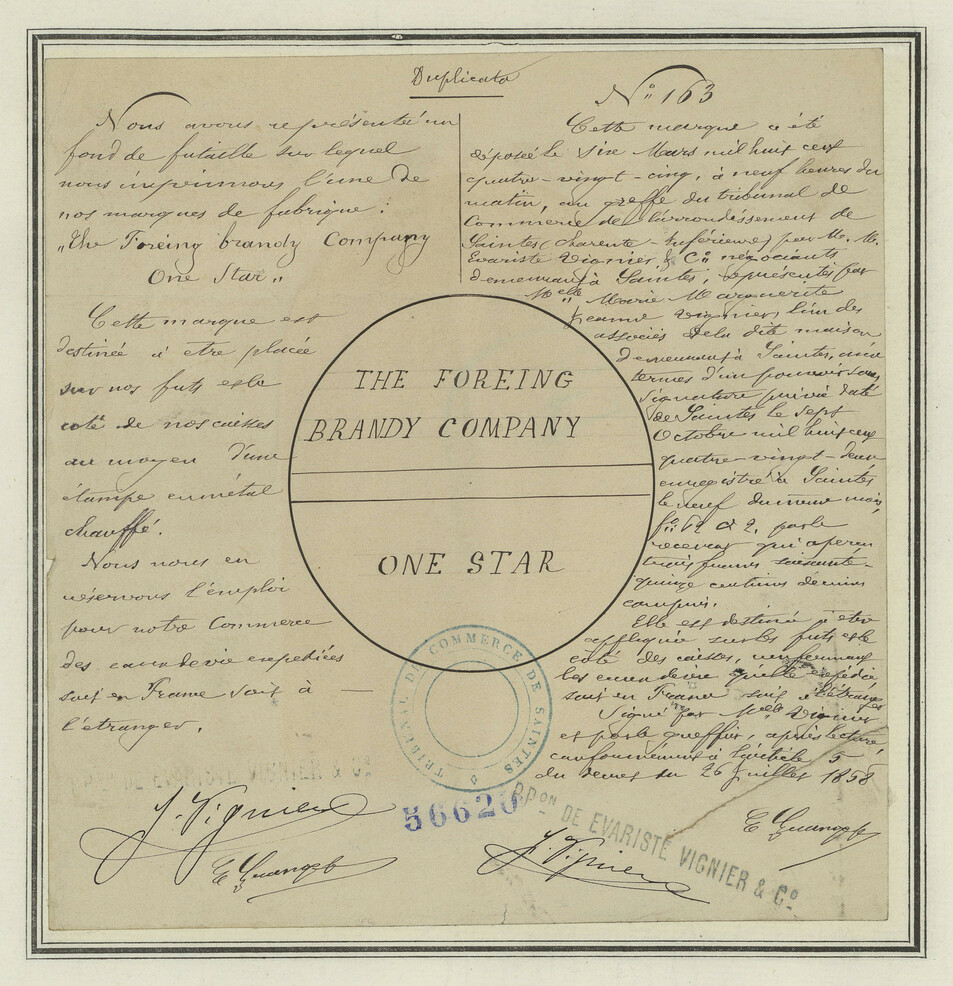 Duplicata
Nous avons représenté un
fond de futaille sur lequel
nous imprimons l'une de
nos marques de fabrique:
"The Foreing brandy Company
One Star"
Cette marque est
destinée à etre placée
sur nos futs et le
coté de nos caisses
au moyen d'une
étampe en métal
chauffé.
Nous nous en
réservons l'emploi
pour notre Commerce
des eaux de vie expédiées
soit en France soit à —
l'étranger.
N° 163
Cette marque a été
déposée le Six Mars mil huit cent
quatre-vingt-cinq, à neuf heures du
matin, au greffe du tribunal de
Commerce de l'arrondissement de
Saintes (Charente-Inférieure) par M. M.
Evariste Vignier & C° négociants
demeurant à Saintes, représentés par
Melle Marie Marguerite
Jeanne Vignier, l'un des
associés de la dite maison
demeurant à Saintes, aux
termes d'un pouvoir sous
signature privée daté
de Saintes le sept
Octobre mil huit cent
quatre-vingt-deux
enregistré à Saintes
le neuf du même mois,
f° 62 par le
receveur qui a perçu
trois francs soixante-
quinze centimes décimes
compris.
Elle est destinée à etre
appliquée sur les futs et le
coté des caisses, renfermant
les eaux de vie qu'elle expédie
soit en France soit à l'étranger
Signé par Melle Vignier
et par le greffier, après lecture,
conformément à l'article 5
du décret du 26 juillet 1858
THE FOREING
BRANDY COMPANY
ONE STAR
TRIBUNAL DE COMMERCE DE SAINTES
56620
PPON DE EVARISTE VIGNIER & C°
J. Vignier
PPON DE EVARISTE VIGNIER & C°
J. Vignier